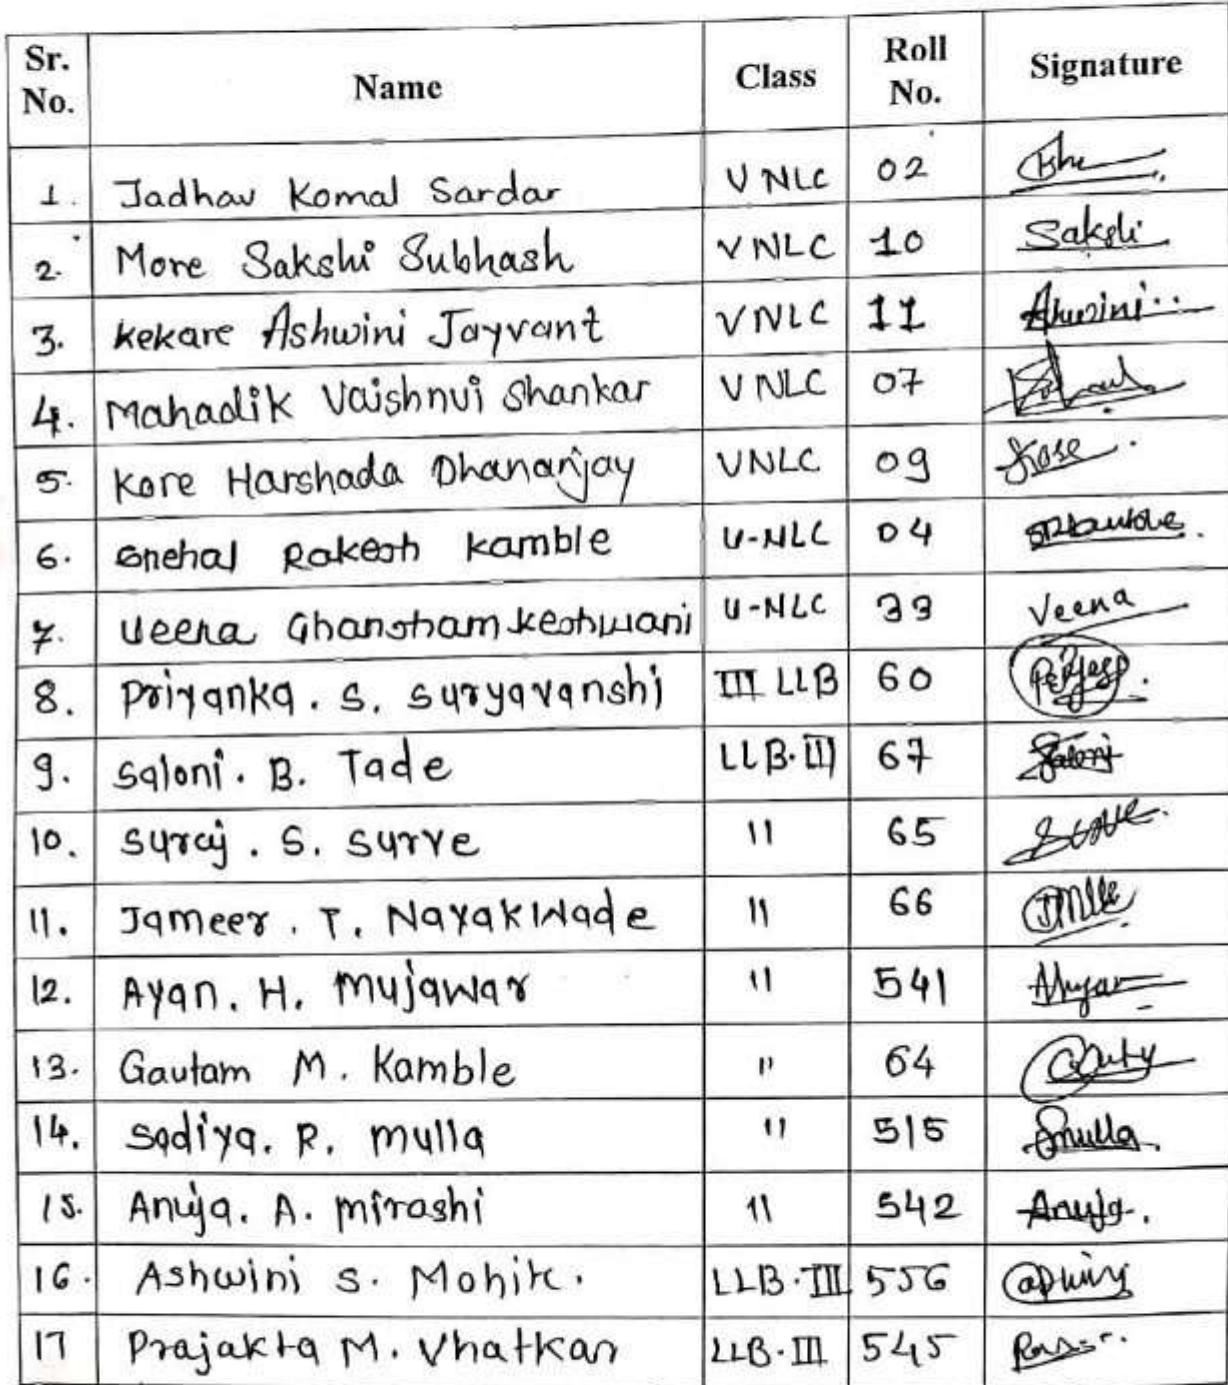 Sr. No. Name Class Roll No. Signature
1. Jadhav Komal Sardar V NLC 02
2. More Sakshi Subhash V NLC 10 Sakshi
3. Kekare Ashwini Jayvant V NLC 11 Ashwini
4. Mahadik Vaishnvi Shankar V NLC 07
5. Kore Harshada Dhananjay V NLC 09 Kore
6. Snehal Rakesh Kamble V-NLC 04
7. Veena Ghansham Keshwani V-NLC 33 Veena
8. Priyanka. S. Suryavanshi III LLB 60
9. Saloni. B. Tade LLB.III 67 Saloni
10. Suraj. S. Surve " 65 Surve
11. Jameer. T. Nayakwade " 66
12. Ayan. H. Mujawar " 541
13. Gautam M. Kamble " 64
14. Sadiya. R. Mulla " 515 Smulla
15. Anuja. A. Mirashi " 542 Anuja.
16. Ashwini S. Mohite. LLB.III 556
17 Prajakta M. Vhatkar LLB.III 545